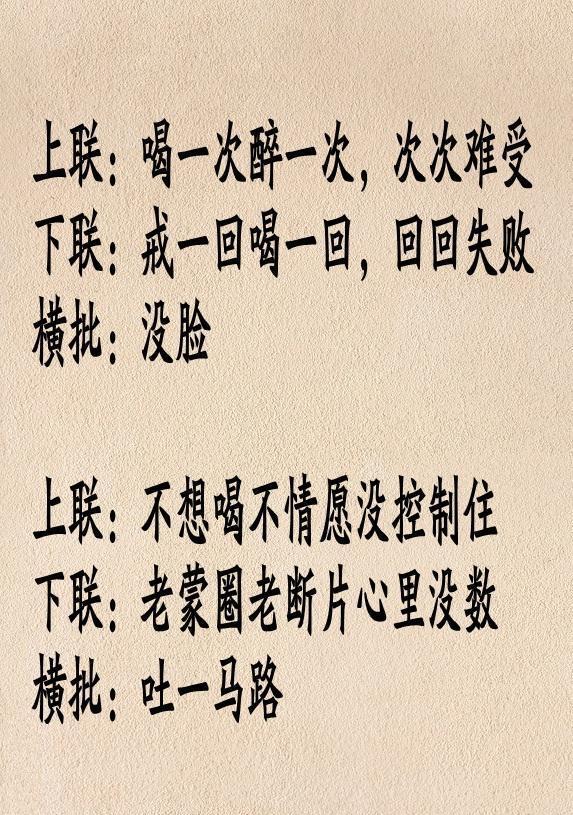 上联：喝一次醉一次，次次难受
下联：戒一回喝一回，回回失败
横批：没脸
上联：不想喝不情愿没控制住
下联：老蒙圈老断片心里没数
横批：吐一马路